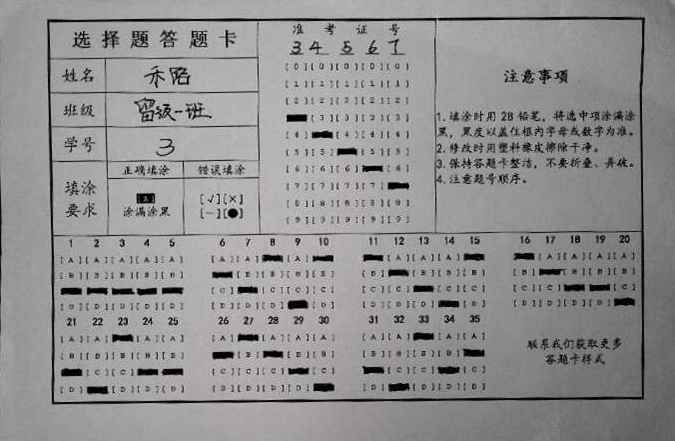 选择题答题卡
姓名 禾路
班级 留级一班
学号 3
填涂要求
正确填涂 错误填涂
[A] [√][×]
涂满涂黑 [—][●]
准考证号
3 4 5 6 7
[0][0][0][0][0]
[1][1][1][1][1]
[2][2][2][2][2]
[3][3][3][3]
[4][4][4][4]
[5][5][5][5]
[6][6][6][6]
[7][7][7][7]
[8][8][8][8][8]
[9][9][9][9][9]
注意事项
1.填涂时用2B铅笔，将选中项涂满涂
黑，黑度以盖住框内字母或数字为准。
2.修改时用塑料橡皮擦除干净。
3.保持答题卡整洁，不要折叠、弄破。
4.注意题号顺序。
1 2 3 4 5
[A][A][A][A][A]
[B][B][B][B][B]
[D][D][D][D][D]
6 7 8 9 10
[A][A][A]
[B][B][B][B]
[C][C][C][C]
[D][D][D][D]
11 12 13 14 15
[A][A][A]
[B][B][B][B]
[C][C][C][C]
[D][D][D][D]
16 17 18 19 20
[A][A][A][A]
[B][B][B][B]
[C][C][C]
[D][D][D][D]
21 22 23 24 25
[A][A][A][A]
[B][B][B][B][B]
[C][C]
[D][D][D][D]
26 27 28 29 30
[A][A][A][A]
[B][B][B]
[C][C][C][C][C]
[D][D][D][D]
31 32 33 34 35
[A][A][A][A]
[B][B][B][B]
[C][C][C]
[D][D][D][D]
联系我们获取更多
答题卡样式